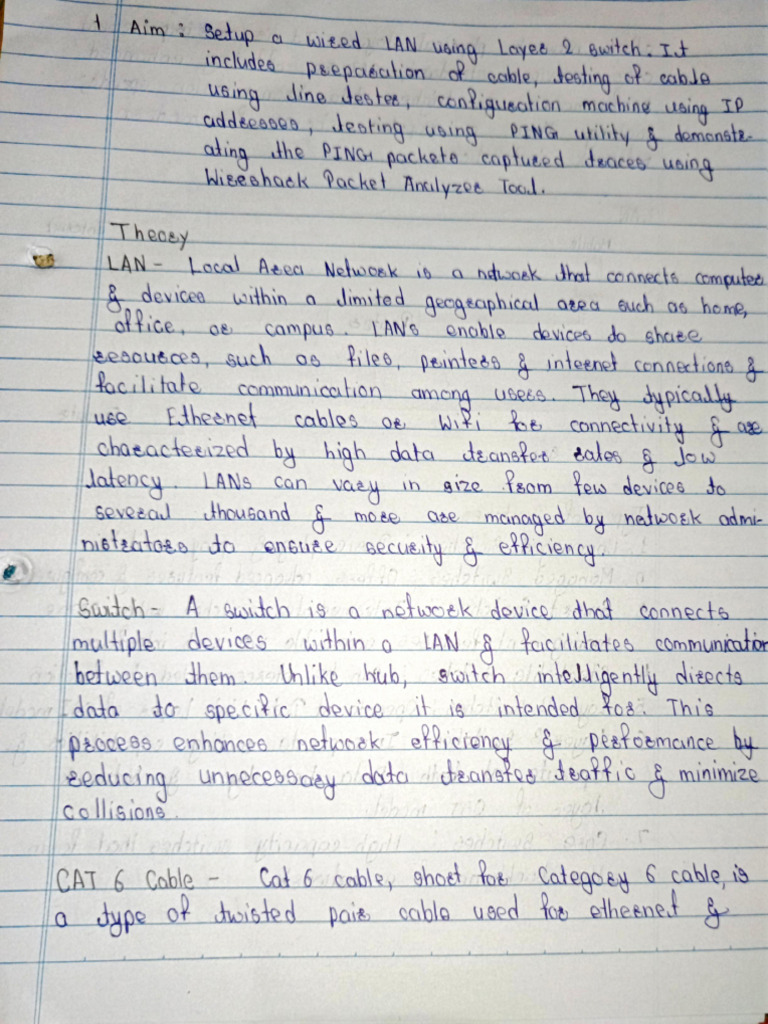 1 Aim : Setup a wired LAN using Layer 2 switch. It
includes preparation of cable, testing of cable
using line tester, configuration machine using IP
addresses, testing using PING utility & demonstr-
ating the PING packets captured traces using
Wireshark Packet Analyzer Tool.
Theory
LAN - Local Area Network is a network that connects computer
& devices within a limited geographical area such as home,
office, or campus. LAN's enable devices to share
resources, such as files, printers & internet connections &
facilitate communication among users. They typically
use Ethernet cables or WiFi for connectivity & are
characterized by high data transfer rates & low
latency. LANs can vary in size from few devices to
several thousand & more are managed by network admi-
nistrators to ensure security & efficiency.
Switch - A switch is a network device that connects
multiple devices within a LAN & facilitates communication
between them. Unlike hub, switch intelligently directs
data to specific device it is intended for. This
process enhances network efficiency & performance by
reducing unnecessary data transfer traffic & minimize
collisions.
CAT 6 Cable - Cat 6 cable, short for Category 6 cable, is
a type of twisted pair cable used for ethernet &